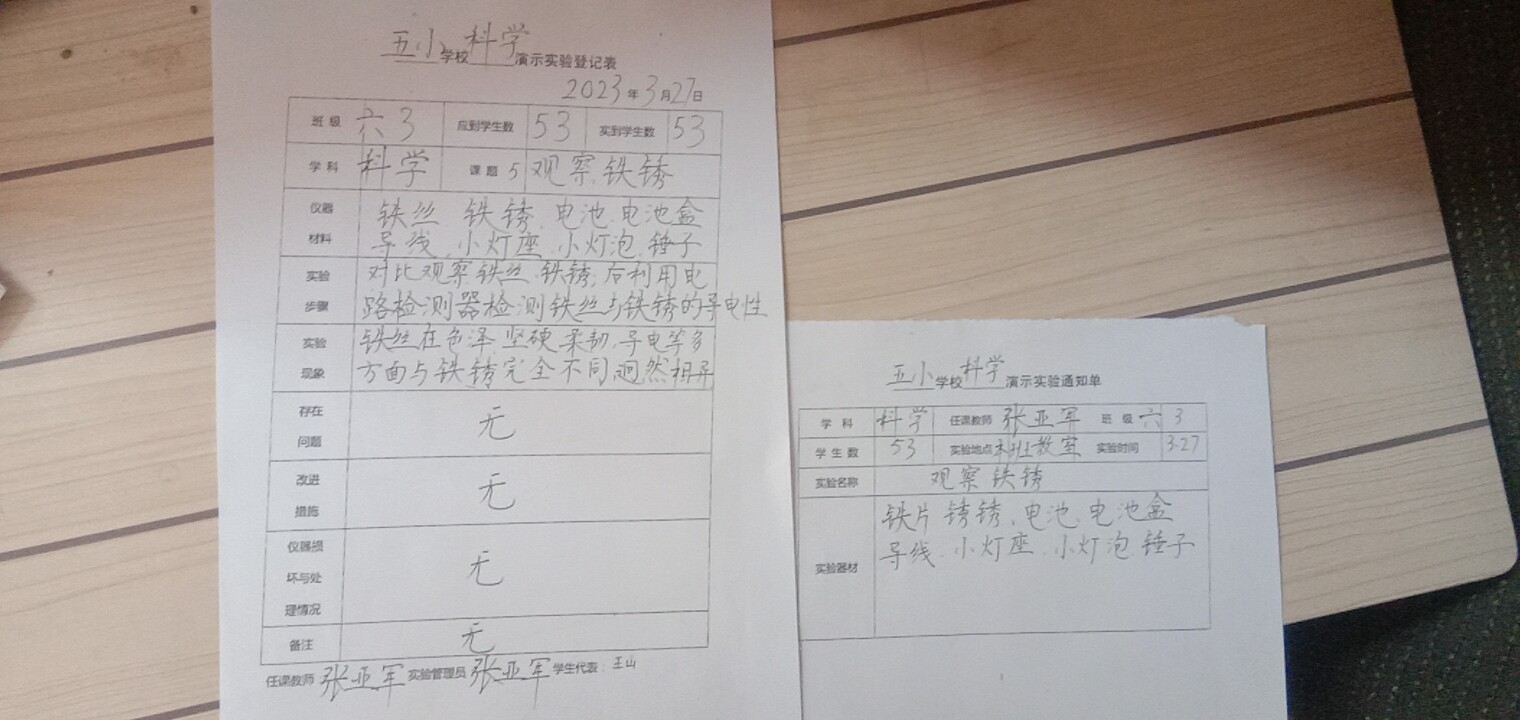 五小学校科学演示实验登记表
2023年3月27日
班级 六3 应到学生数 53 实到学生数 53
学科 科学 课题 5 观察铁锈
仪器 铁丝 铁锈、电池、电池盒
材料 导线、小灯座、小灯泡、锤子
实验 对比观察铁丝、铁锈;后利用电
步骤 路检测器检测铁丝与铁锈的导电性
实验 铁丝在色泽、坚硬、柔韧、导电等多
现象 方面与铁锈完全不同,迥然相异
存在
问题 无
改进
措施 无
仪器损
坏与处 无
理情况
备注 无
任课教师 张亚军 实验管理员 张亚军 学生代表:王山
五小学校科学演示实验通知单
学科 科学 任课教师 张亚军 班级 六3
学生数 53 实验地点 本班教室 实验时间 3.27
实验名称 观察铁锈
铁片 锈锈、电池、电池盒
导线、小灯座、小灯泡、锤子
实验器材